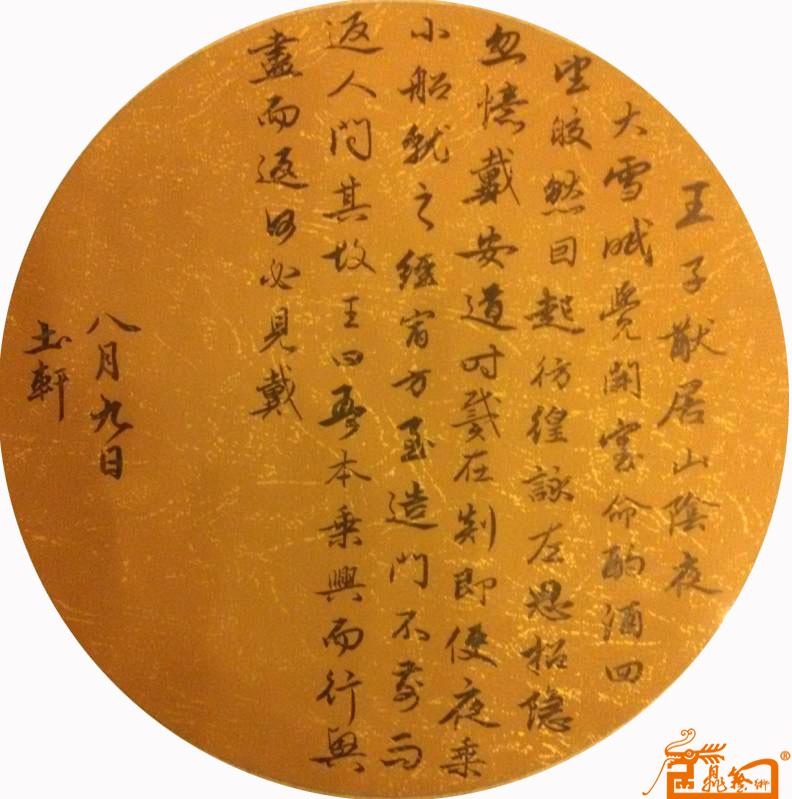 王子猷居山陰夜
大雪眠覺開室命酌酒四
望皎然因起彷徨詠左思招隐
忽憶戴安道时戴在剡即便夜乘
小船就之經宿方至造門不前而
返人問其故王曰吾本乘興而行興
盡而返何必見戴
八月九日
土軒